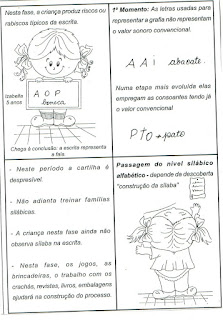 Nesta fase, a criança produz riscos ou
rabiscos típicos da escrita.
Izabella
5 anos
A O P
boneca
Chega à conclusão: a escrita representa
a fala.
1º Momento: As letras usadas para
representar a grafia não representam
o valor sonoro convencional.
A A i abacate.
Numa etapa mais evoluída elas
empregam as consoantes tendo já
o valor convencional.
PTO → pato
- Neste período a cartilha é
desprezível.
- Não adianta treinar famílias
silábicas.
- A criança nesta fase ainda não
observa sílaba na escrita.
- Nesta fase, os jogos, as
brincadeiras, o trabalho com os
crachás, revistas, livros, embalagens
ajudará na construção do processo.
Passagem do nível silábico
alfabético - depende da descoberta
"construção da sílaba"